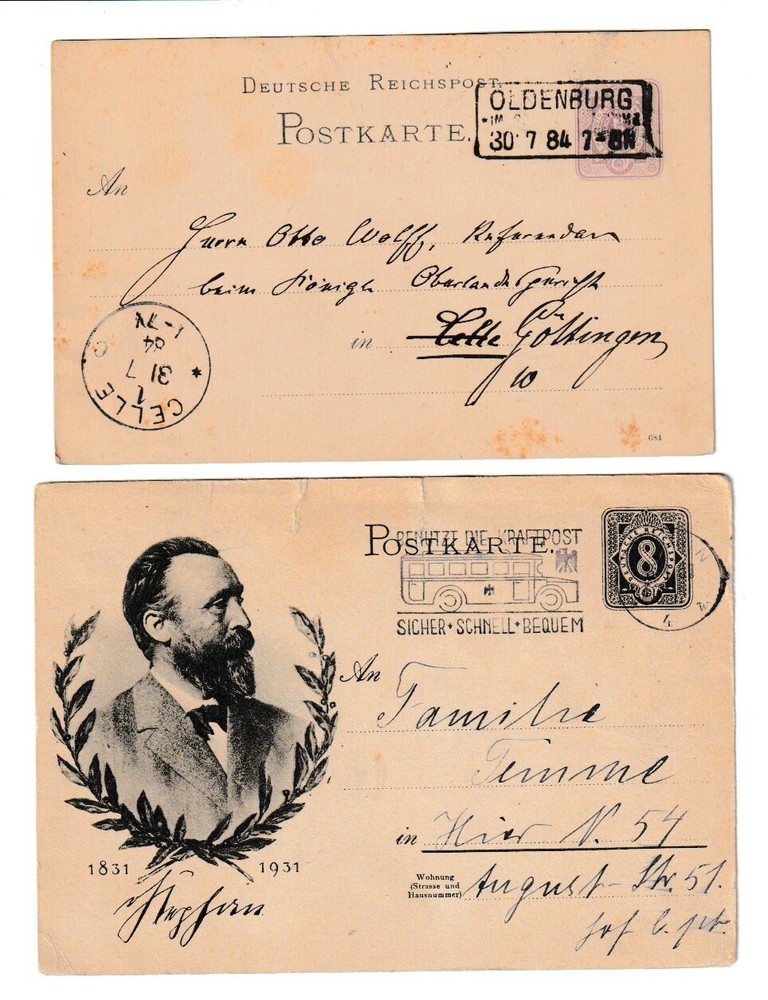 DEUTSCHE REICHSPOST.
POSTKARTE.
OLDENBURG
*IM
30 7 84 7-8N
An
Herrn Otto Wolff, Referendar
beim Königl Oberlandesgericht
in Celle Göttingen
CELLE
1
31 7
84
1-2N
681
POSTKARTE.
BENUTZT DIE KRAFTPOST
SICHER + SCHNELL + BEQUEM
DEUTSCHE REICHSPOST
8
An
Familie
Temme
in Hier N. 54
Wohnung
(Strasse und
Hausnummer)
August-Str. 51.
Hof l. pt.
1831 1931
Stephan